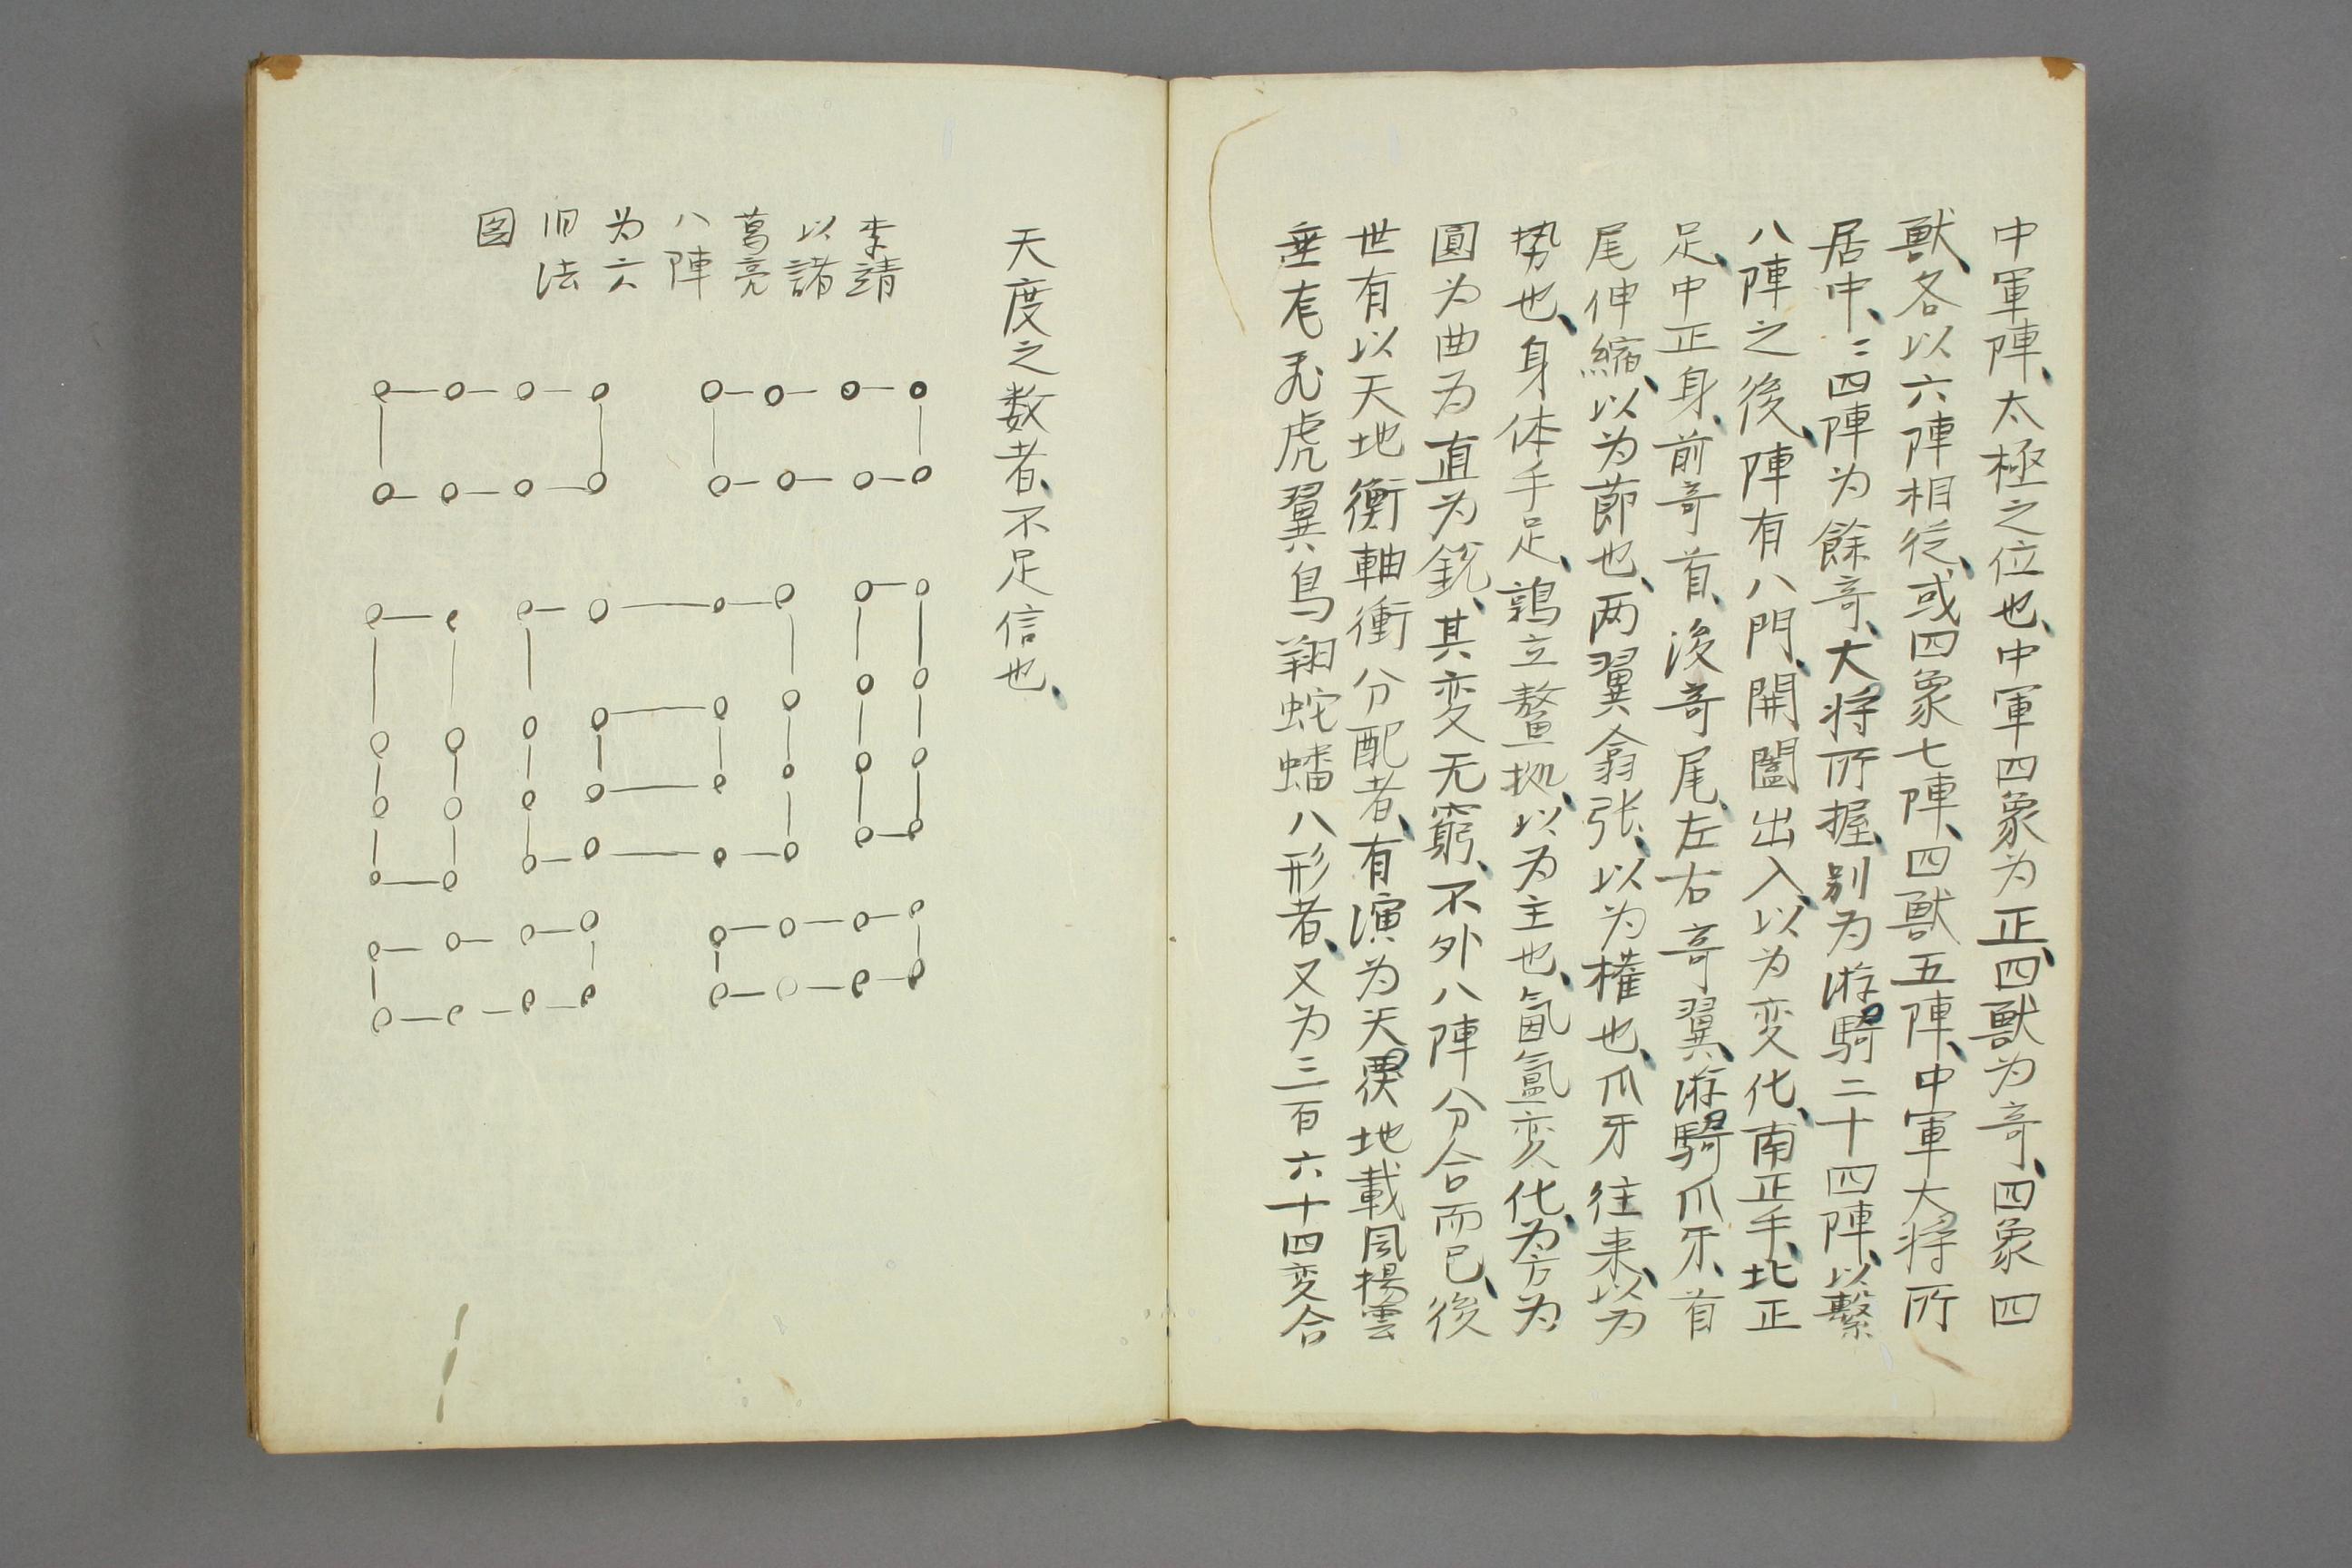 中軍陣、太極之位也、中軍四象为正、四獸为竒、四象四
獸、各以六陣相從、或四象七陣、四獸五陣、中軍大将所
居中、〻四陣为餘竒、大将所握、别为游騎二十四陣、以繫
八陣之後、陣有八門、開闔出入、以为変化、南正手、北正
足、中正身、前竒首、後竒尾、左右竒翼、游騎爪牙、首
尾伸縮、以为莭也、两翼翕张、以为權也、爪牙往来、以为
势也、身体手足、鶉立鰲拠、以为主也、氤氳変化、为方为
圓为曲为直为銳、其変无窮、不外八陣分合而已、後
世有以天地衡軸衝分配者、有演为天覆地載風揚雲
垂虎翼鳥翔蛇蟠八形者、又为三百六十四変合
天度之数者、不足信也、
李靖
以諸
葛亮
八陣
为六
旧法
图